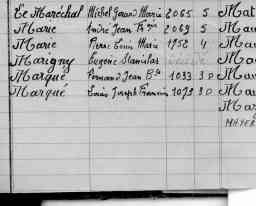 Le Maréchal Michel Marie 2065 5 Mat
Marie André Jean 2069 5 Mau
Marie Pierre Louis Marie 1958 4 Mau
Marigny Eugène Stanislas Mau
Marqué Fernand Jean Bte 1033 30 Mau
Marqué Louis Joseph François 1079 30 Mau
Mau
Mar
MAYER